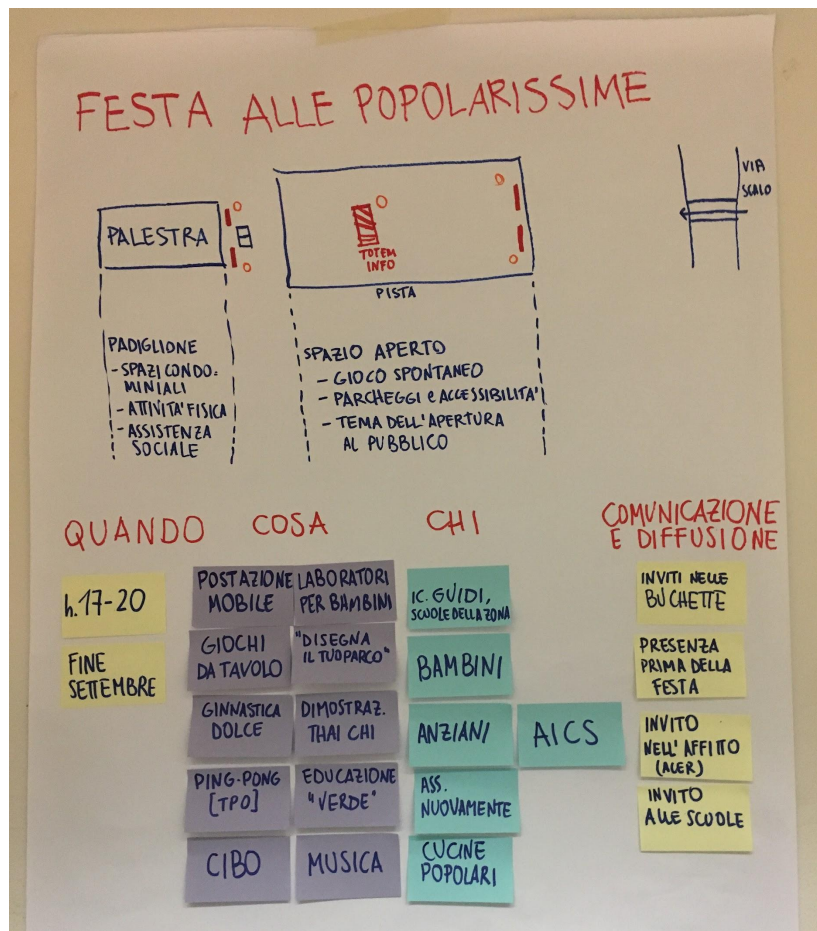 FESTA ALLE POPOLARISSIME
PALESTRA
TOTEM
INFO
PISTA
VIA
SCALO
PADIGLIONE
- SPAZI CONDO=
MINIALI
- ATTIVITA' FISICA
- ASSISTENZA
SOCIALE
SPAZIO APERTO
- GIOCO SPONTANEO
- PARCHEGGI e ACCESSIBILITA'
- TEMA DELL'APERTURA
AL PUBBLICO
QUANDO
h. 17-20
FINE
SETTEMBRE
COSA
POSTAZIONE
MOBILE
LABORATORI
PER BAMBINI
GIOCHI
DA TAVOLO
"DISEGNA
IL TUO PARCO"
GINNASTICA
DOLCE
DIMOSTRAZ.
THAI CHI
PING-PONG
[TPO]
EDUCAZIONE
"VERDE"
CIBO
MUSICA
CHI
IC. GUIDI,
SCUOLE DELLA ZONA
BAMBINI
ANZIANI
AICS
ASS.
NUOVAMENTE
CUCINE
POPOLARI
COMUNICAZIONE
E DIFFUSIONE
INVITI NELLE
BUCHETTE
PRESENZA
PRIMA DELLA
FESTA
INVITO
NELL'AFFITTO
(ACER)
INVITO
ALLE SCUOLE